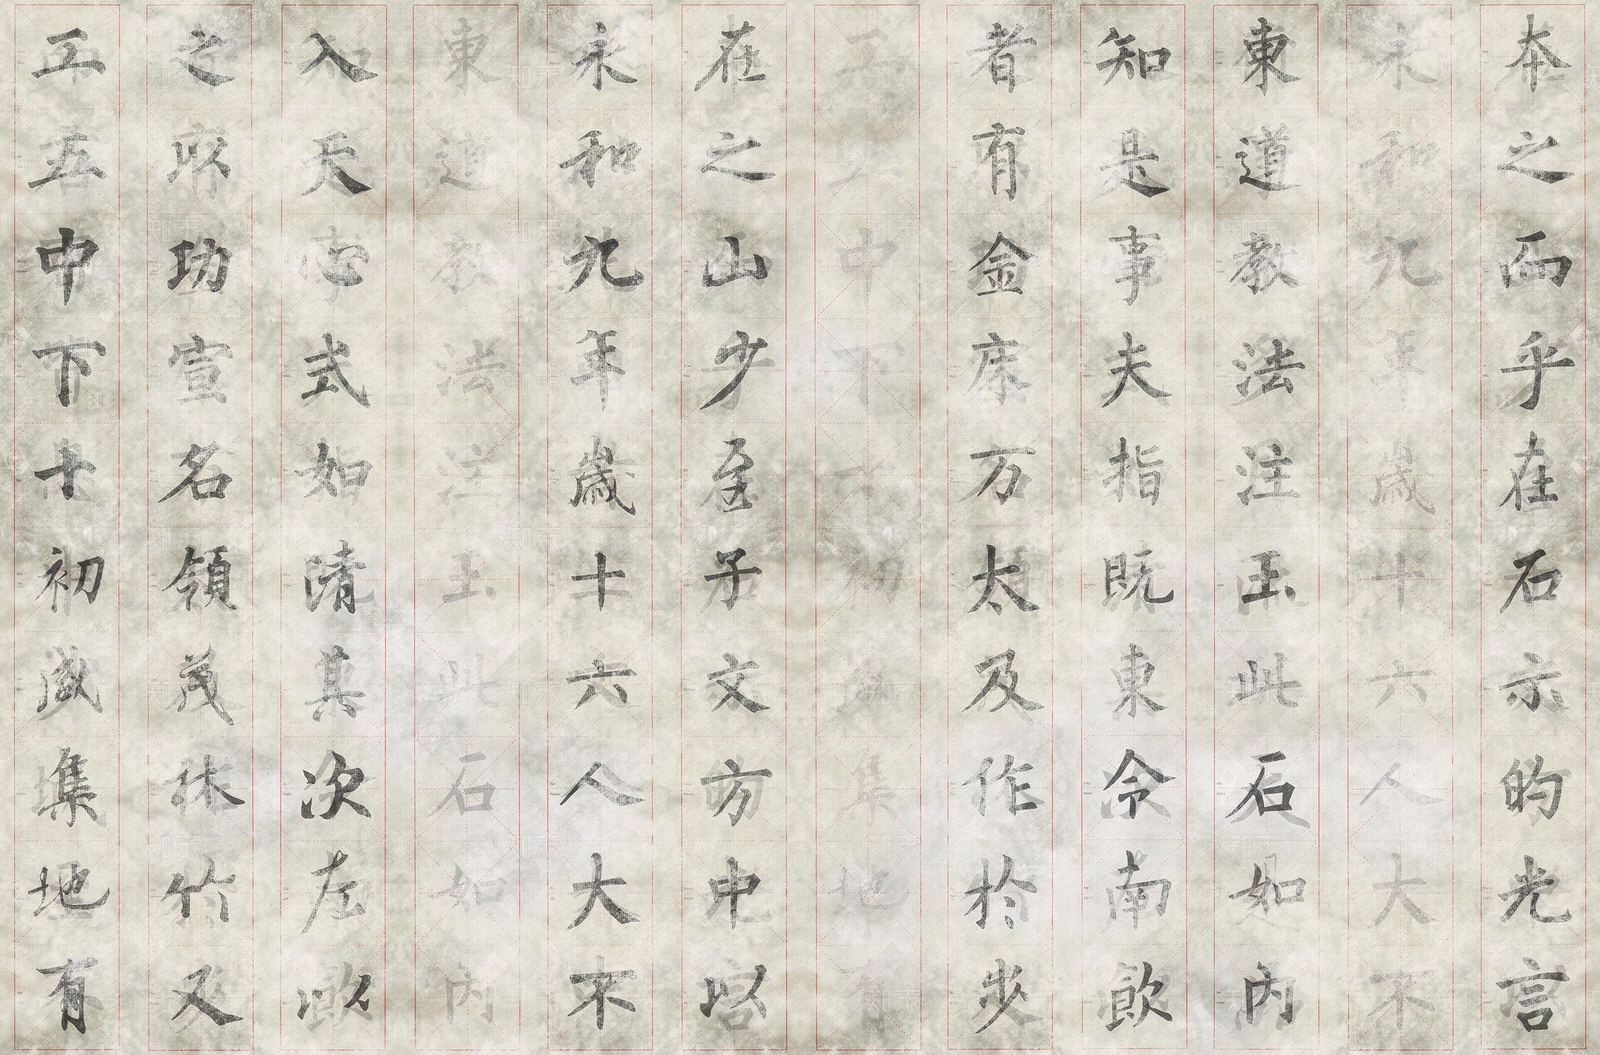 本之而乎在石示的光言
永和九年歲十六人大不
東道教法注玉此石如內
知是事夫指既東令南飲
者有金床方太及作於
中下初集地有
在之山少至子文方中以
永和九年歲十六人大不
東道教法注玉此石如內
入天心式如清其次左以
之功宣名領茂林竹又
工五中下十初盛集地有